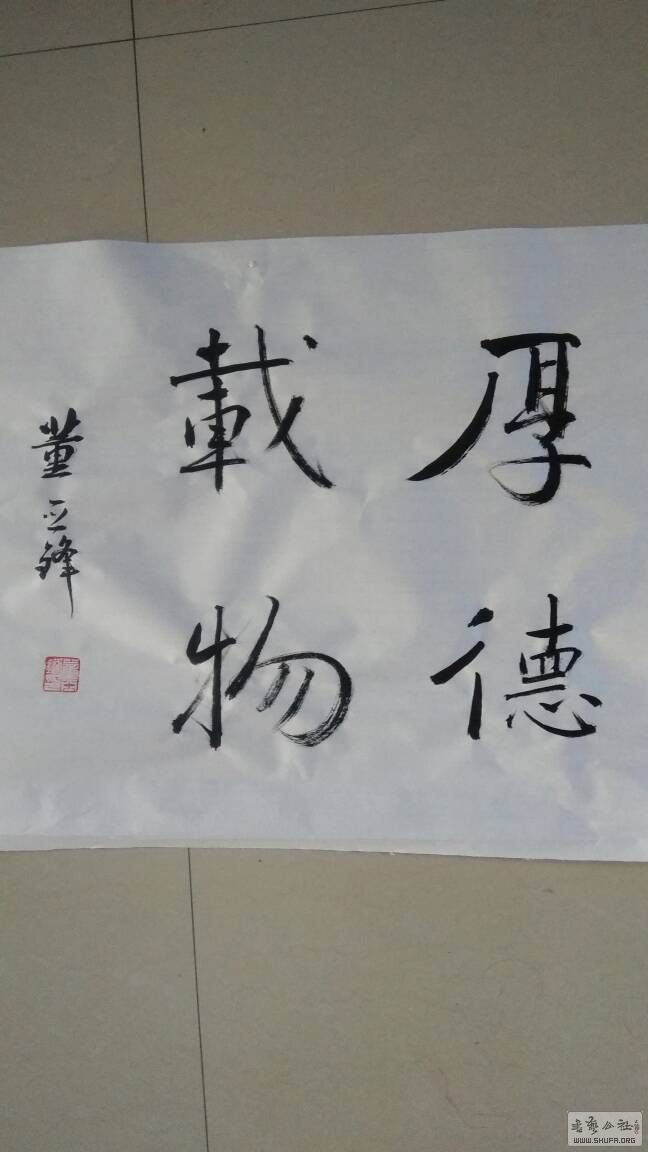 厚德
載物
董正鋒
书艺公社
WWW.SHUFA.ORG